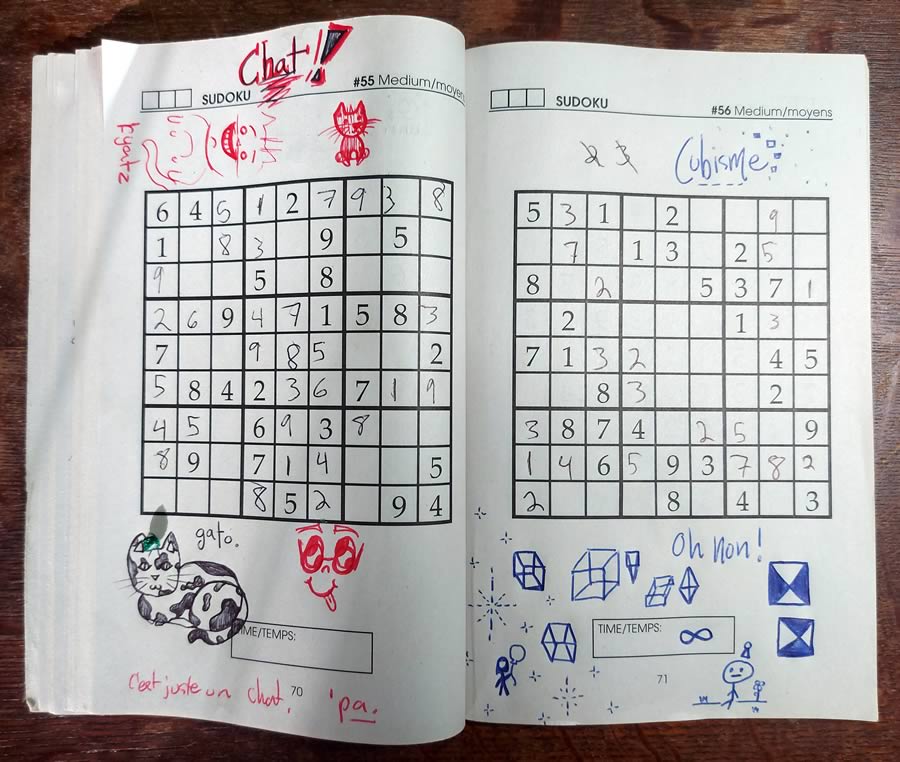 Chat!!
SUDOKU #55 Medium/moyens
6 4 5 1 2 7 9 3 8
1 8 3 9 5
9 5 8
2 6 9 4 7 1 5 8 3
7 9 8 5 2
5 8 4 2 3 6 7 1 9
4 5 6 9 3 8
8 9 7 1 4 5
8 5 2 9 4
gato.
TIME/TEMPS:
C'est juste un chat.
'pa.
70
SUDOKU #56 Medium/moyens
Cubisme
5 3 1 2 9
7 1 3 2 5
8 2 5 3 7 1
2 1 3
7 1 3 2 4 5
8 3 2
3 8 7 4 2 5 9
1 4 6 5 9 3 7 8 2
2 8 4 3
Oh non!
TIME/TEMPS: ∞
71